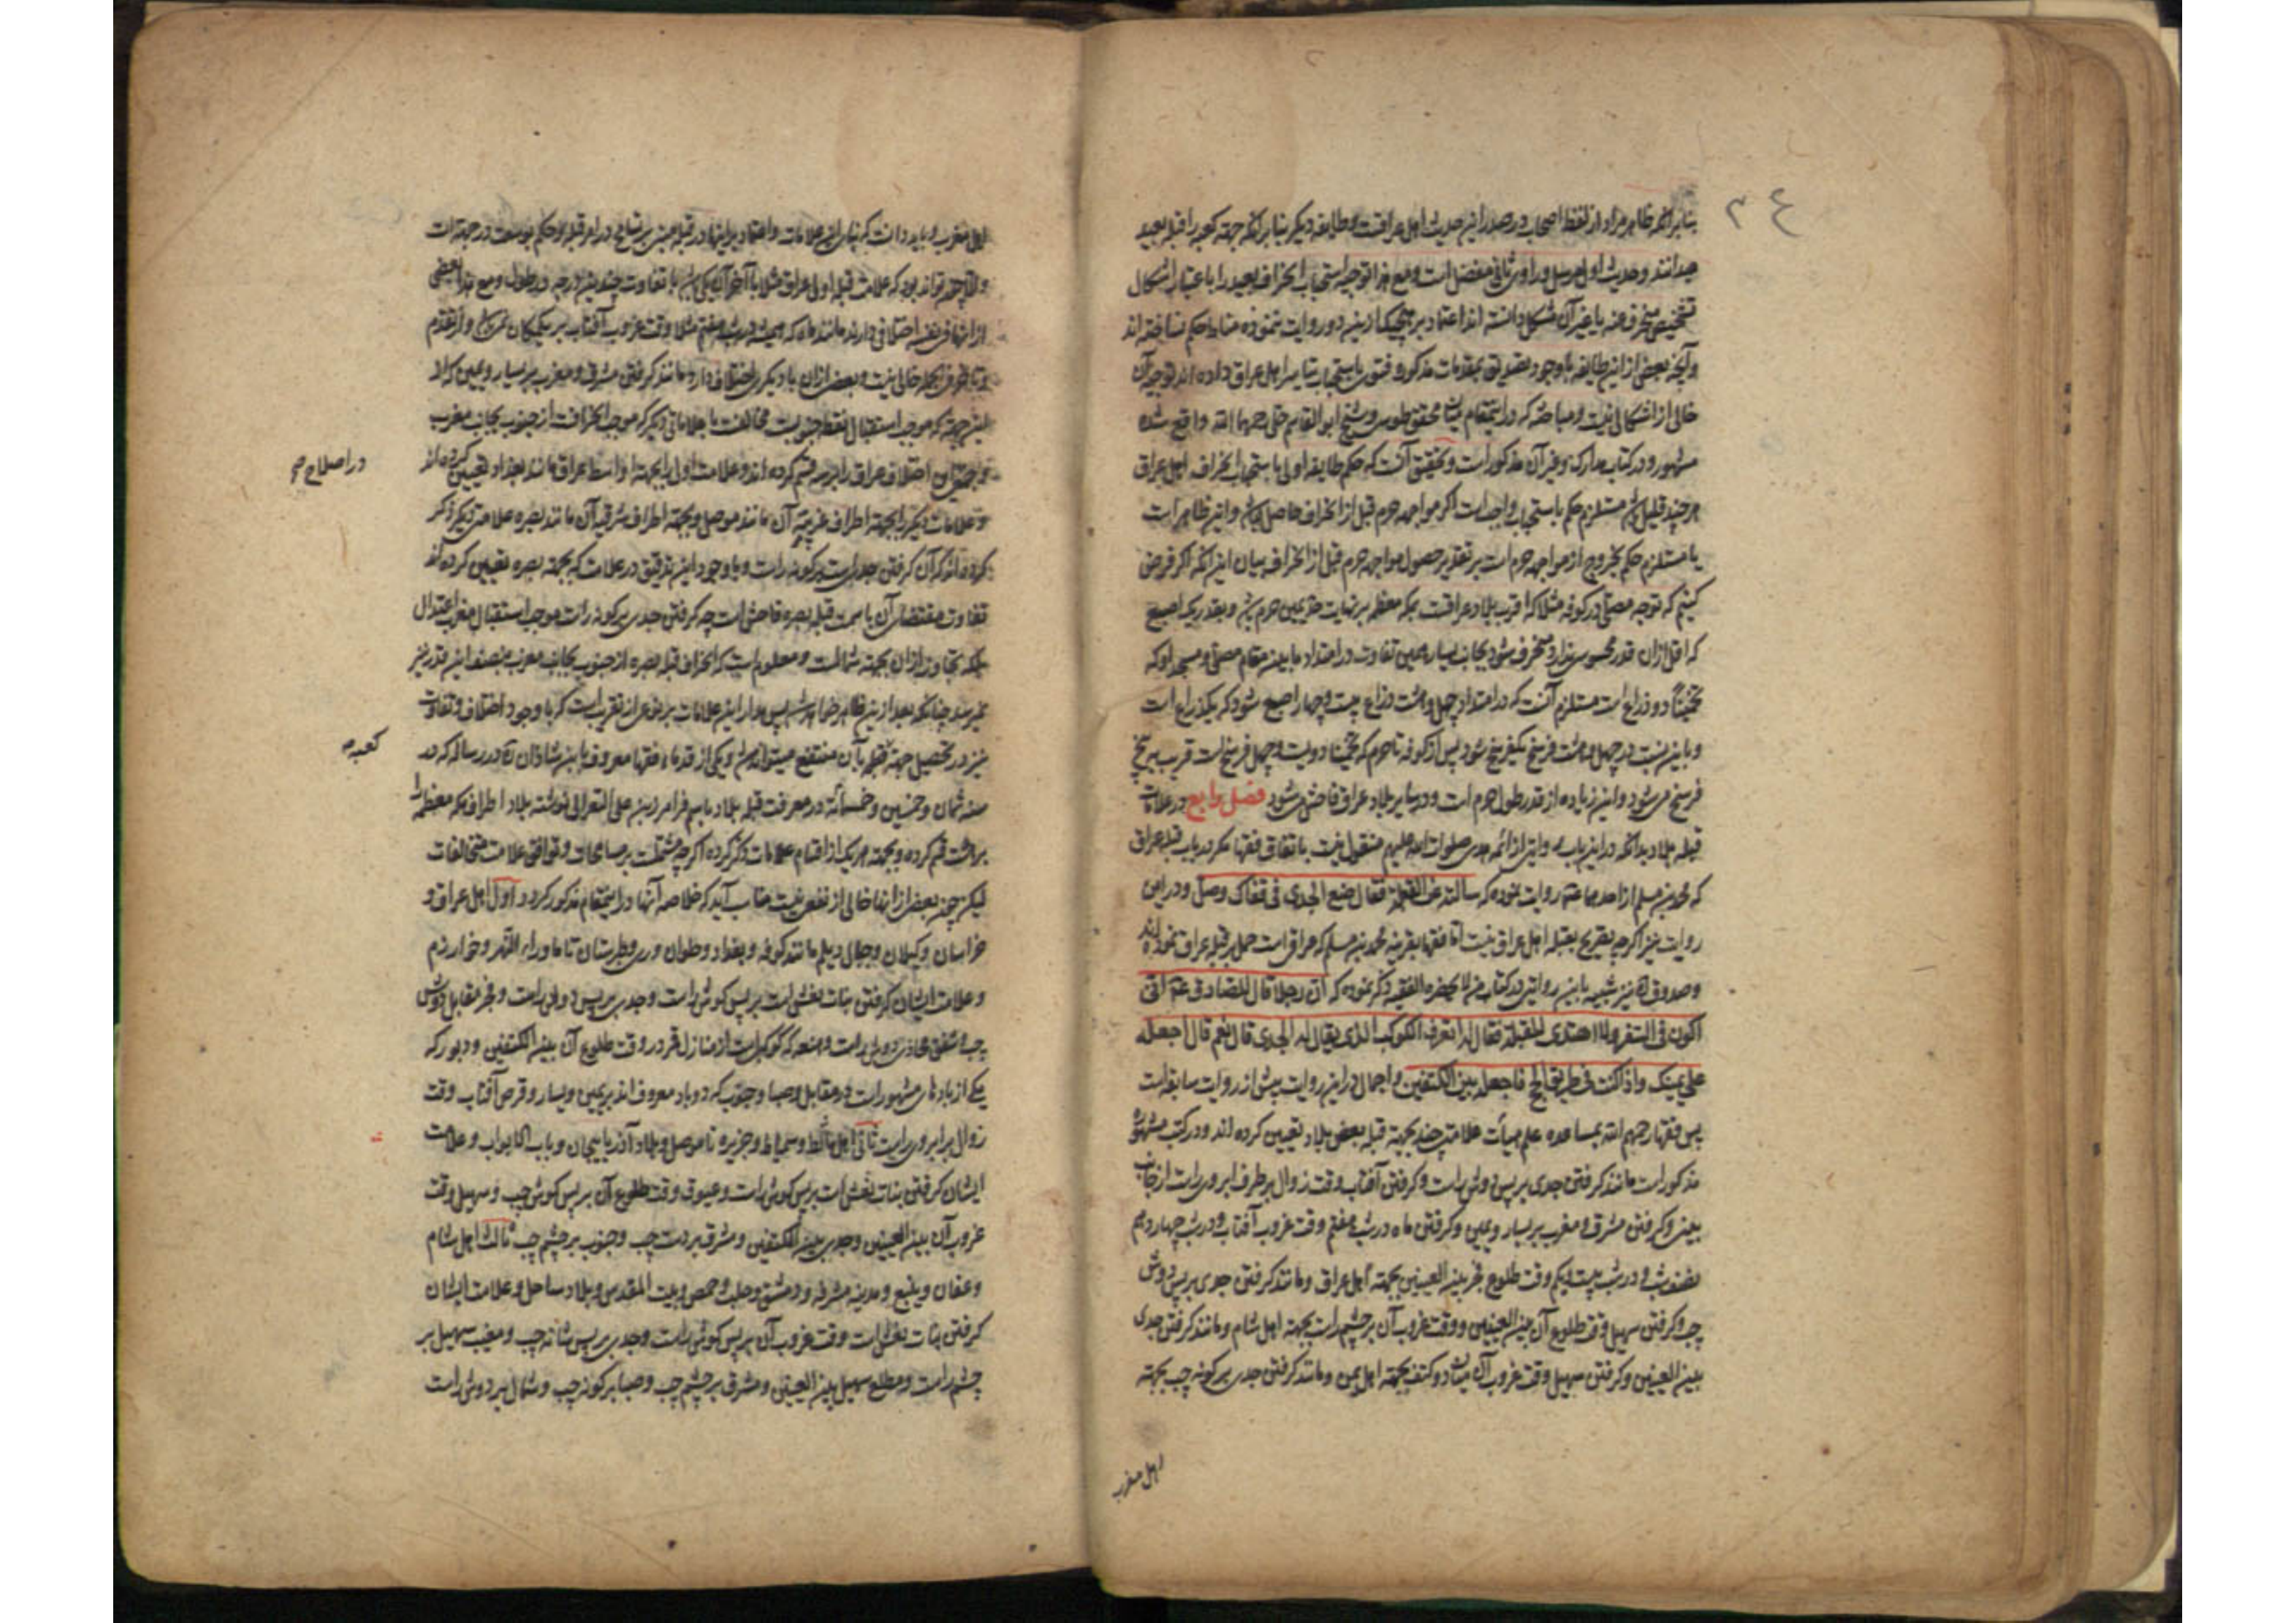 ۲۴
بنابر آنکه ظاهر مراد از لفظ اصحاب در صدر این حدیث اهل عراقست و طایفه دیگر بنابر آنکه جهة کعبه را قبله بعید
میدانند و حدیث اول مرسل و راوی ثانی مفضل است و مع هذا توجیه استحباب انحراف بعید را باعتبار اشکال
تشخیص منحرف عنه یا غیر آن مشکل دانسته اند اعتماد بر هیچیک ازین دو روایت ننموده مناط حکم نساخته اند
و آنچه بعضی از این طایفه با وجود تصدیق بمقدمات مذکوره فتوی باستحباب تیاسر اهل عراق داده اند توجیه آن
خالی از اشکالی نیست و مباحثه که در اینمقام میان محقق طوسی و شیخ ابو القاسم حلی رحمهما الله واقع شده
مشهور و در کتاب مدارک و غیر آن مذکور است و تحقیق آنست که حکم طایفه اولی باستحباب انحراف اهل عراق
هر چند قلیل باشد مستلزم حکم باستحباب واجب است اگر مواجهه حرم قبل از انحراف حاصل نباشد و این ظاهر است
یا مستلزم حکم بخروج از مواجهه حرم است بر تقدیر حصول مواجهه حرم قبل از انحراف بیان این آنکه اگر فرض
کنیم که توجه مصلی در کوفه مثلا که اقرب بلاد عراقست بمکه معظمه بر نهایت حد یمین حرم باشد و بقدر یک اصبع
که اقل ازان قدر محسوس ندارد منحرف شود بجانب یسار همین تفاوت در امتداد ما بین مقام مصلی و مسجد او که
تخمینًا دو ذراع است مستلزم آنست که در امتداد چهل و هشت ذراع بیست و چهار اصبع شود که یکذراع است
و باین نسبت در چهل و هشت فرسخ یکفرسخ شود پس از کوفه تا حرم که تخمینًا دویست و چهل فرسخ است قریب بپنج
فرسخ می شود و این زیاده از قدر طول حرم است و در سایر بلاد عراق فاحش تر میشود فصل رابع در علامات
قبله بلاد بدانکه در این باب روایتی از ائمه هدی صلوات الله علیهم منقول نیست باتفاق فقها مگر در باب قبله عراق
که محمد بن مسلم از احدهما ع روایت نموده که سالته عن القبلة فقال ضع الجدی فی قفاک وصل و در این
روایت نیز اگرچه تصریح بقبله اهل عراق نیست اما فقها بقرینه محمد بن مسلم که عراقی است حمل بر قبله عراق نموده اند
و صدوق ره نیز شبیه باین روایتی در کتاب من لا یحضره الفقیه ذکر نموده که ان رجلا قال للصادق ع انی
اکون فی السفر و لا اهتدی للقبلة فقال له اتعرف الکوکب الذی یقال له الجدی قال نعم قال اجعله
علی یمینک و اذا کنت فی طریق الحج فاجعله بین الکتفین و اجمال در این روایت بیش از روایت سابقه است
پس فقها رحمهم الله بمساعده علم هیأت علامتی چند بجهة قبله بعض بلاد تعیین کرده اند و در کتب مشهوره
مذکور است مانند گرفتن جدی بر پس دوش راست و گرفتن آفتاب وقت زوال بر طرف ابروی راست از جانب
بینی و گرفتن مشرق و مغرب بر یسار و یمین و گرفتن ماه در شب هفتم وقت غروب آفتاب و در شب چهاردهم
نصف شب و در شب بیست و یکم وقت طلوع فجر بین العینین بجهة اهل عراق و مانند گرفتن جدی بر پس دوش
چپ و گرفتن سهیل وقت طلوع آن بین العینین و وقت غروب آن بر چشم راست بجهة اهل شام و مانند گرفتن جدی
بین العینین و گرفتن سهیل وقت غروب آن میان دو کتف بجهة اهل یمن و مانند گرفتن جدی بر گونه چپ بجهة
اهل مغرب
اهل مغرب و باید دانست که بنای این علامات و اعتماد بر اینها در قبله مبنی بر تسامح در امر قبله و حکم بوسعت در جهتست
و الا چون تواند بود که علامت قبله اول عراق مثلا با آخر آن یکی باشد با تفاوت چندین درجه در طول و مع هذا بعضی
از اینها فی نفسه اختلافی دارند مانند ماه که همیشه در شب هفتم مثلا وقت غروب آفتاب بر یک مکان نمی باشد و از تقدم
و تاخر فی الجمله خالی نیست و بعض ازان با دیگری اختلافی دارد مانند گرفتن مشرق و مغرب بر یسار و یمین که لا
لیف جهة که موجب استقبال نقطه جنوبست مخالفت با علاماتی دیگر که موجب انحرافست از جنوب بجانب مغرب
در اصلاح صح
و علامات دیگر را بجهة اطراف غربیه آن مانند موصل و بجهة اطراف شرقیه آن مانند بصره علامتی دیگر ذکر
کرده اند که آن گرفتن جدی است بر گونه راست و با وجود این تدقیق در علامت که بجهة بصره تعیین کرده اند
تفاوت مقتضای آن با سمت قبله بصره فاحش است چه گرفتن جدی بر گونه راست موجب استقبال مغرب اعتدال
بلکه تجاوز ازان بجهة شمالست و معلوم است که انحراف قبله بصره از جنوب بجانب مغرب بنصف این قدر نیز
نمیرسد چنانکه بعد ازین ظاهر خواهد شد پس مدار این علامات بر نوعی از تقریب است که با وجود اختلاف و تفاوت
کعبه صح
نیز در تحصیل جهة قبله بآن منتفع میتوان شد و یکی از قدماء فقها معروف بابن شاذان ره در رساله که در
سنه ثمان و خمسین و خمسمائة در معرفت قبله بلاد باسم فرامرز بن علی نوشته بلاد اطراف مکه معظمه را
بر هشت قسم کرده و بجهة هر یک از اقسام علامات ذکر کرده اگرچه مشتملست بر مسامحات و توافق علامت مختلفات
لیکن چون بعض از انها خالی از نفعی نیست مناسب آید که خلاصه آنها در اینمقام مذکور گردد اول اهل عراق و
خراسان و گیلان و جبال دیلم مانند کوفه و بغداد و حلوان و ری و طبرستان تا ما وراء النهر و خوارزم
و علامت ایشان گرفتن بنات نعش است بر پس گوش راست و جدی بر پس دوش راست و فجر مقابل دوش
چپ و شفق محاذی دوش راست و هنعه که کوکبیست از منازل قمر در وقت طلوع آن بین الکتفین و دبور که
یکی از بادهای مشهور است در مقابل و صبا و جنوب که دو باد معروف اند بر یمین و یسار و قرص آفتاب وقت
زوال بر ابروی راست ثانی اهل مالط و سمیاط و جزیره تا موصل و بلاد آذربایجان و باب الابواب و علامت
ایشان گرفتن بنات نعش است بر پس گوش راست و عیوق وقت طلوع آن بر پس گوش چپ و سهیل وقت
غروب آن بین العینین و جدی بین الکتفین و مشرق بر دست چپ و جنوب بر چشم چپ ثالث اهل شام
و عسفان و ینبع و مدینه مشرفه و دمشق و حلب و حمص و بیت المقدس و بلاد ساحل و علامت ایشان
گرفتن بنات نعش است وقت غروب آن بر پس گوش راست و جدی بر پس شانه چپ و مغیب سهیل بر
چشم راست و مطلع سهیل بین العینین و مشرق بر چشم چپ و صبا بر گونه چپ و شمال بر دوش راست